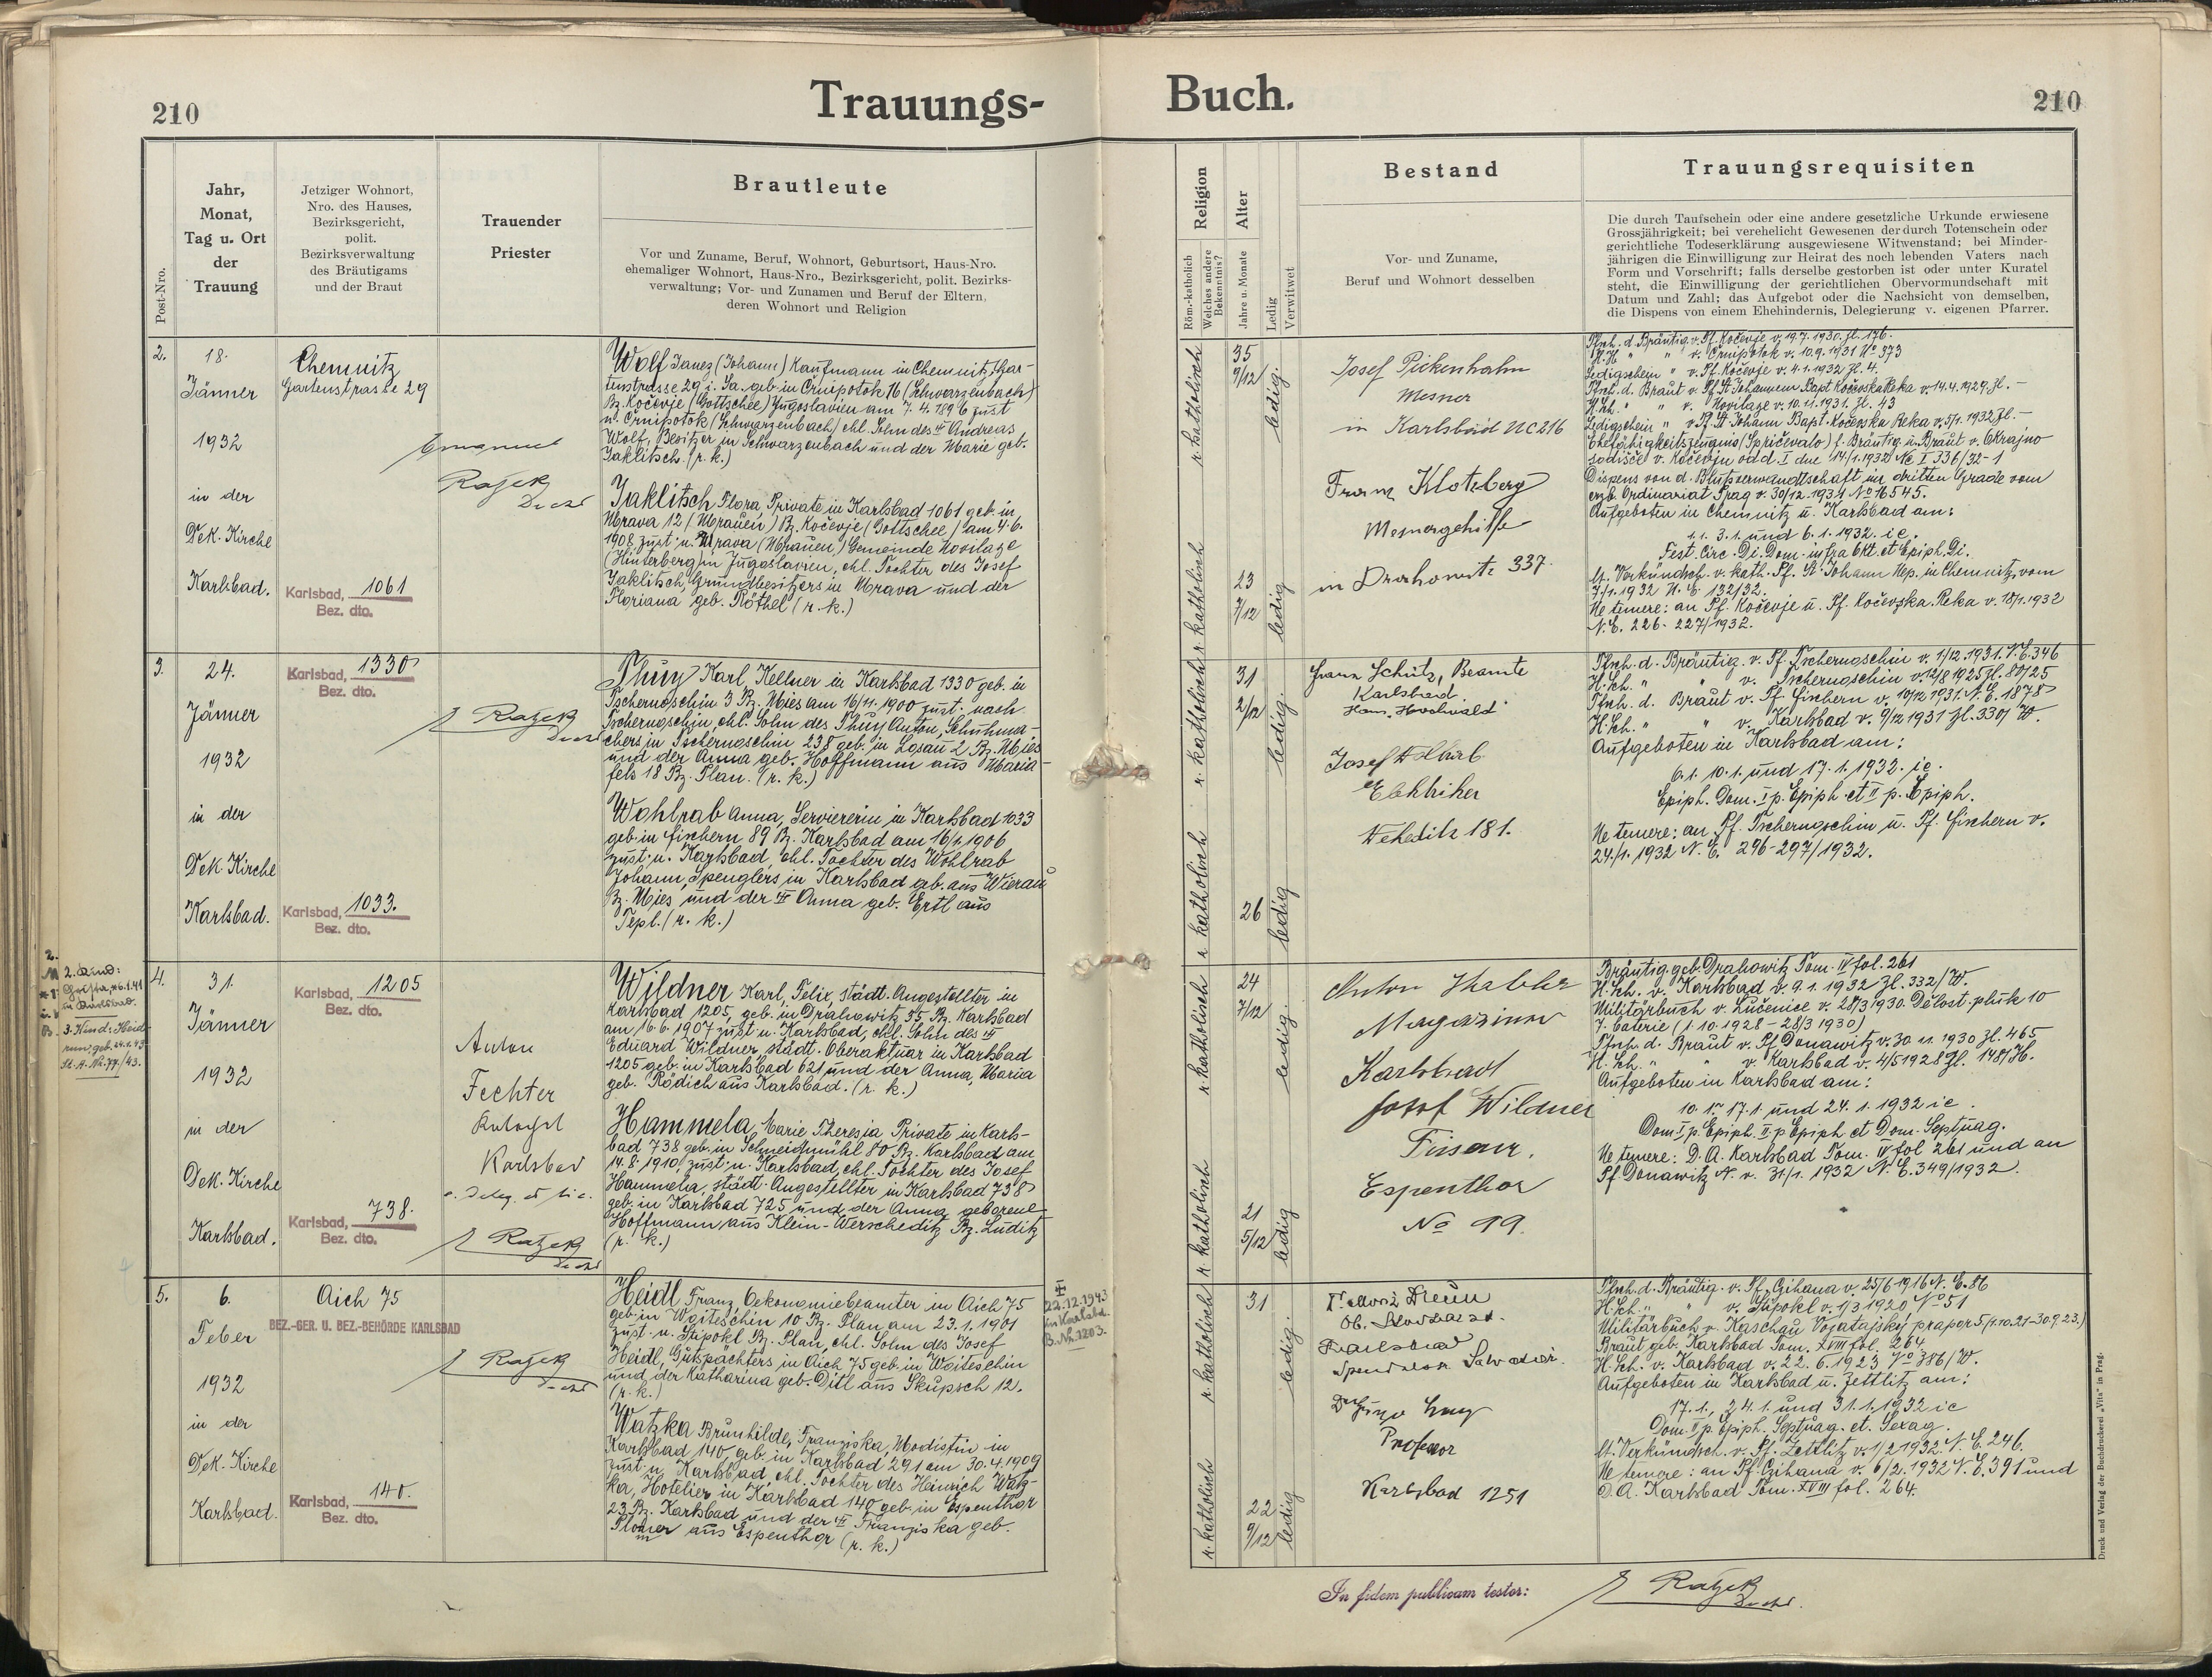 210
Trauungs-
Buch.
210
Post-Nro.
Jahr,
Monat,
Tag u. Ort
der
Trauung
Jetziger Wohnort,
Nro. des Hauses,
Bezirksgericht,
polit.
Bezirksverwaltung
des Bräutigams
und der Braut
Trauender
Priester
Brautleute
Vor und Zuname, Beruf, Wohnort, Geburtsort, Haus-Nro.
ehemaliger Wohnort, Haus-Nro., Bezirksgericht, polit. Bezirks-
verwaltung; Vor- und Zunamen und Beruf der Eltern,
deren Wohnort und Religion
Religion
Röm.-katholisch
Welches andere
Bekenntnis?
Alter
Jahre u. Monate
Ledig
Verwitwet
Bestand
Vor- und Zuname,
Beruf und Wohnort desselben
Trauungsrequisiten
Die durch Taufschein oder eine andere gesetzliche Urkunde erwiesene
Grossjährigkeit; bei verehelicht Gewesenen der durch Totenschein oder
gerichtliche Todeserklärung ausgewiesene Witwenstand; bei Minder-
jährigen die Einwilligung zur Heirat des noch lebenden Vaters nach
Form und Vorschrift; falls derselbe gestorben ist oder unter Kuratel
steht, die Einwilligung der gerichtlichen Obervormundschaft mit
Datum und Zahl; das Aufgebot oder die Nachsicht von demselben,
die Dispens von einem Ehehindernis, Delegierung v. eigenen Pfarrer.
2.
18.
Jänner
1932
in der
Dek. Kirche
Karlsbad.
Chemnitz
Gartenstrasse 29
Karlsbad, 1061
Bez. dto.
Emanuel
Ratzek
Dechant
Wolf Janez (Johann) Kaufmann in Chemnitz, Gar-
tenstrasse 29 i. Sa. geb. in Crnipotok 16 (Schwarzenbach)
Bz. Kočevje (Gottschee) Jugoslavien am 7. 4. 1896 zust.
n. Crnipotok (Schwarzenbach) ehl. Sohn des Andreas
Wolf, Besitzer in Schwarzenbach und der Marie geb.
Jaklitsch. (r. k.)
Jaklitsch Flora, Private in Karlsbad 1061 geb. in
Mrava 12 (Mrauen) Bz. Kočevje (Gottschee) am 4. 6.
1908 zust. n. Mrava (Mrauen) Gemeinde Novilaze
(Hinterberg) in Jugoslavien, ehl. Tochter des Josef
Jaklitsch, Grundbesitzers in Mrava und der
Floriana geb. Röthel (r. k.)
r. katholisch
35
9/12
ledig.
r. katholisch
23
7/12
ledig
Josef Pickenhahn
Mesner
in Karlsbad NC 216
Franz Klotzberg
Mesnergehilfe
in Drahowitz 337.
Tfsch. d. Bräutig. v. Pf. Kočevje v. 19. 7. 1930. Zl. 176.
H.Sch. " " v. Crnipotok v. 10. 9. 1931 No 373
Ledigschein " v. Pf. Kočevje v. 4. 1. 1932 Zl. 4.
Tfsch. d. Braut v. Pf. St. Johannem Bapt. Kočevska Reka v. 14. 4. 1929. Zl. -
H.Sch. " " v. Novilaze v. 10. 11. 1931. Zl. 43
Ledigschein " v. Pf. St. Johann Bapt. Kočevska Reka v. 5/1. 1932 Zl. -
Ehefähigkeitszeugnis (Spričevalo) f. Bräutig. u. Braut v. Okrajno
sodišče v. Kočevju odd. I dne 14/1. 1932 Nc I 336/32-1
Dispens von d. Blutsverwandtschaft im dritten Grade vom
erzb. Ordinariat Prag v. 30/12. 1931 No 16545.
Aufgeboten in Chemnitz u. Karlsbad am:
1. 1. 3. 1. und 6. 1. 1932. ie.
Fest. Circ. Di. Dom. infra Okt. et Epiph. Di.
lt. Verkündsch. v. kath. Pf. St. Johann Nep. in Chemnitz vom
7/1. 1932 N. E. 132/32.
Ne temere: an Pf. Kočevje u. Pf. Kočevska Reka v. 18/1. 1932
N. E. 226-227/1932.
3.
24.
Jänner
1932
in der
Dek. Kirche
Karlsbad.
Karlsbad, 1330
Bez. dto.
Karlsbad, 1033.
Bez. dto.
E Ratzek
Dechant
Thuy Karl, Kellner in Karlsbad 1330 geb. in
Tschernoschin 3 Bz. Mies am 16/11. 1900 zust. nach
Tschernoschin, ehl. Sohn des Thuy Anton, Schuhma-
chers in Tschernoschin 238 geb. in Losau 2 Bz. Mies
und der Anna geb. Hoffmann aus Maria-
fels 18 Bz. Plan. (r. k.)
Wohlrab Anna, Serviererin in Karlsbad 1033
geb. in Fischern 89 Bz. Karlsbad am 16/1. 1906
zust. n. Karlsbad, ehl. Tochter des Wohlrab
Johann, Spenglers in Karlsbad geb. aus Wierau
Bz. Mies und der Anna geb. Ertl aus
Tepl. (r. k.)
r. katholisch
31
2/12
ledig.
r. katholisch
26
ledig
Franz Schütz, Beamte
Karlsbad
Haus "Hochwald"
Josef Wohlrab
Elektriker
Weheditz 181.
Tfsch. d. Bräutig. v. Pf. Tschernoschin v. 1/12. 1931. N. E. 346
H.Sch. " " v. Tschernoschin v. 12/8 1925 Zl. 80/25
Tfsch. d. Braut v. Pf. Fischern v. 10/12 1931. N. E. 1878
H.Sch. " " v. Karlsbad v. 9/12 1931 Zl. 330/W.
Aufgeboten in Karlsbad am:
6. 1. 10. 1. und 17. 1. 1932. ie.
Epiph. Dom. I p. Epiph. et II p. Epiph.
Ne temere: an Pf. Tschernoschin u. Pf. Fischern v.
24./1. 1932 N. E. 296-297/1932.
2. Kind:
in Karlsbad.
3. Kind: Heid-
run, geb. 24. 1. 43
St. A. Nr. 77/43.
4.
31.
Jänner
1932
in der
Dek. Kirche
Karlsbad.
Karlsbad, 1205
Bez. dto.
Karlsbad, 738.
Bez. dto.
Anton
Fechter
Katechet
Karlsbad
c. deleg. et lic.
E Ratzek
Dechant
Wildner Karl, Felix, städt. Angestellter in
Karlsbad 1205, geb. in Drahowitz 35 Bz. Karlsbad
am 16. 6. 1907 zust. n. Karlsbad, ehl. Sohn des
Eduard Wildner, städt. Oberaktuar in Karlsbad
1205 geb. in Karlsbad 621 und der Anna, Maria
geb. Rödich aus Karlsbad. (r. k.)
Hammela Marie Theresia Private in Karls-
bad 738 geb. in Schneidmühl 80 Bz. Karlsbad am
14. 8. 1910, zust. n. Karlsbad, ehl. Tochter des Josef
Hammela, städt. Angestellter in Karlsbad 738
geb. in Karlsbad 725 und der Anna geborene
Hoffmann aus Klein-Werscheditz Bz. Luditz
(r. k.)
r. katholisch
24
7/12
ledig.
r. katholisch
21
5/12
ledig
Anton
Magazineur
Karlsbad
Josef Wildner
Friseur.
Espenthor
No 99.
Bräutig. geb. Drahowitz Tom. IV fol. 261
H.Sch. v. Karlsbad v. 9. 1. 1932 Zl. 332/W.
Militärbuch v. Lučenice v. 28/3 1930. Dělost. pluk 10
7. baterie (1. 10. 1928 - 28/3 1930)
Tfsch. d. Braut v. Pf. Donawitz v. 30. 11. 1930 Zl. 465
H.Sch. " " v. Karlsbad v. 4/5 1928 Zl. 148/H.
Aufgeboten in Karlsbad am:
10. 1. 17. 1. und 24. 1. 1932 ie.
Dom. I p. Epiph. II p. Epiph. et Dom. Septuag.
Ne temere: D. A. Karlsbad Tom. IV fol 261 und an
Pf. Donawitz N. v. 31/1. 1932 N. E. 349/1932.
5.
6.
Feber
1932
in der
Dek. Kirche
Karlsbad.
Aich 75
BEZ.-GER. U. BEZ.-BEHÖRDE KARLSBAD
Karlsbad, 140.
Bez. dto.
E Ratzek
Dechant
Heidl Franz, Oekonomiebeamter in Aich 75
geb. in Woiteschin 10 Bz. Plan am 23. 1. 1901
zust. n. Stipokl Bz. Plan, ehl. Sohn des Josef
Heidl, Gutspächters in Aich 75 geb. in Woiteschin
und der Katharina geb. Ditl aus Skupsch 12.
(r. k.)
Watzka Brunhilde, Franziska, Modistin in
Karlsbad 140 geb. in Karlsbad 291 am 30. 4. 1909
zust. n. Karlsbad, ehl. Tochter des Heinrich Watz-
ka, Hotelier in Karlsbad 140 geb. in Espenthor
23 Bz. Karlsbad und der Franziska geb.
aus Espenthor (r. k.)
22. 12. 1943
in Karlsbd.
B. Nr. 1203.
r. katholisch
31
ledig.
r. katholisch
22
9/12
ledig
Karlsbad
Professor
Karlsbad 1251
Tfsch. d. Bräutig. v. Pf. Czihana v. 25/6 1916 N. E. 86
H.Sch. " " v. Stipokl v. 1/3 1920 No 51
Militärbuch v. Kaschau Vozatajský prapor 5 (1. 10. 21-30. 9. 23.)
Braut geb. Karlsbad Tom. XVIII fol. 264.
H.Sch. v. Karlsbad v. 22. 6. 1923 No 386/W.
Aufgeboten in Karlsbad u. Zettlitz am:
17. 1., 24. 1. und 31. 1. 1932 ie
Dom. II p. Epiph. Septuag. et. Sexag.
lt. Verkündsch. v. Pf. Zettlitz v. 1/2 1932. N. E. 246.
Ne temere: an Pf. Czihana v. 6/2. 1932 N. E. 391 und
D. A. Karlsbad Tom. XVIII fol. 264.
In fidem publicam testor:
E Ratzek
Dechant.
Druck und Verlag der Buchdruckerei „Vita" in Prag.